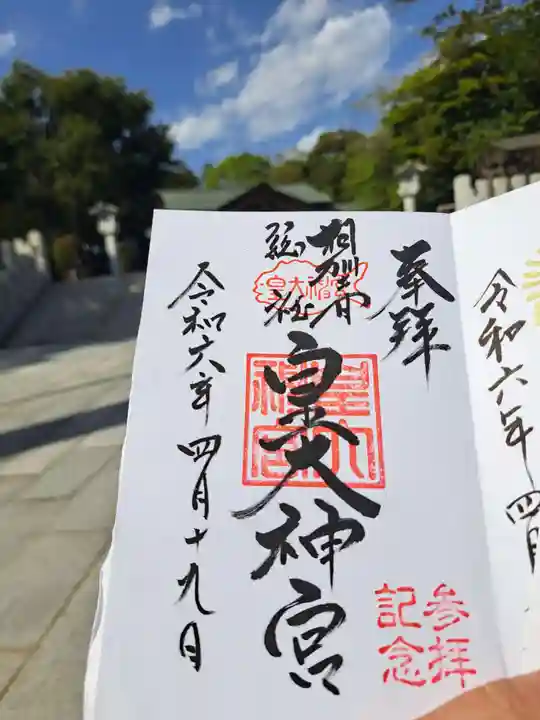 奉拝
相州春
総社
皇大神宮
皇大神宮
皇大神宮
令和六年四月十九日
参拝
記念
令和六年四月